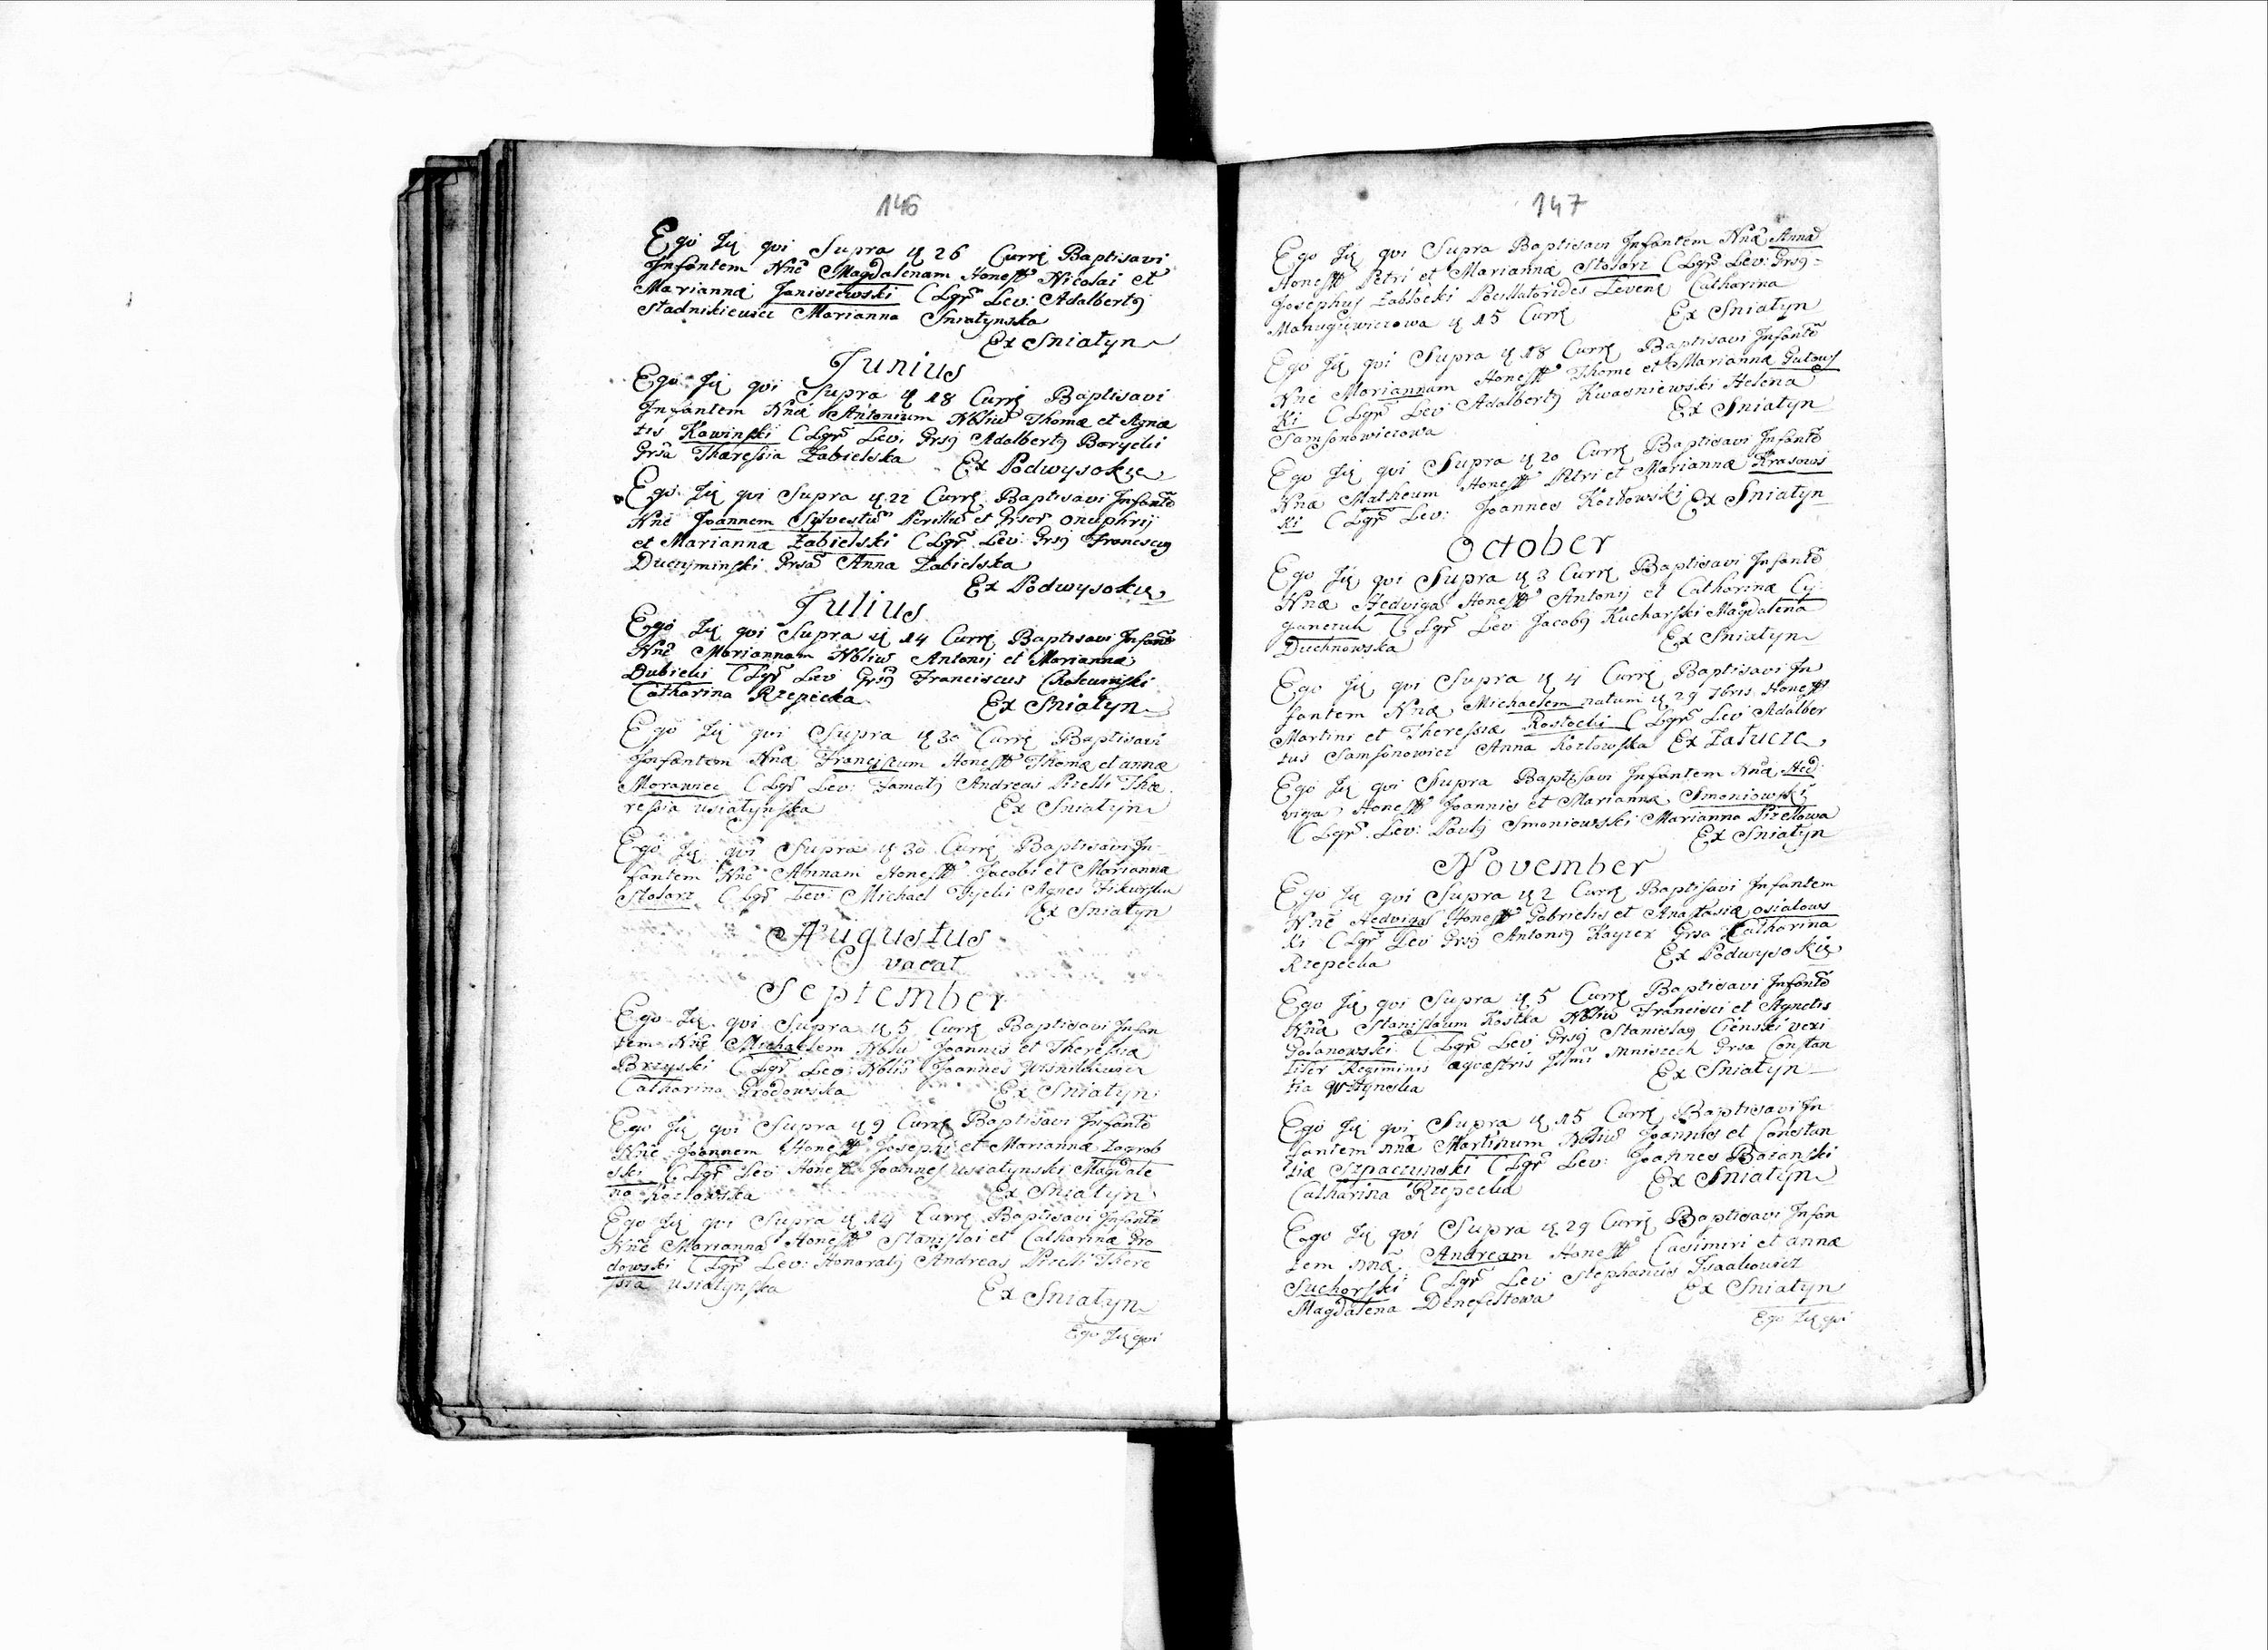 146
Ego Ję qvi Supra ę 26 Currę Baptisavi
Infantem Nnē Magdalenam Honestt Nicolai et
Mariannæ Janiszewski C Lgr̄ Lev: Adalbertg
Stadnikiewicz Marianna Sniatynska
Ex Sniatyn
Junius
Ego Ję qvi Supra ę 18 Currę Baptisavi
Infantem Nnē Antonium Nbliū Thomæ et Agnæ
tis Kawinski C Lgr̄ Lev: Grsg Adalbertg Borycki
Grsa Thæressia Zabielska Ex Podwysokie
Ego Ję qvi Supra ę 22 Currę Baptisavi Infantē
Nnē Joannem Sylvestrū Perillū et Grsor Onuphrij
et Mariannæ Zabielski C Lgr̄ Lev: Grsg Franciscus
Duczyminski Grsa Anna Zabielska
Ex Podwysokie
Julius
Ego Ję qvi Supra ę 14 Currę Baptisavi Infantē
Nnē Mariannam Nbliū Antonij et Mariannæ
Dubicki C Lgr̄ Lev Grsg Franciscus
Catharina Rzepecka Ex Sniatyn
Ego Ję qvi Supra ę 30 Currę Baptisavi
Infantem Nnæ Franciscum Honestt Thomæ et Annæ
Morawiec C Lgr̄ Lev: Famatg Andreas Pizelli Thæ
ressia Usiatynska Ex Sniatyn
Ego Ję qvi Supra ę 30 Currę Baptisavi In
fantem Nnē Annam Honestt Jacobi et Mariannæ
Stolarz C Lgr̄ Lev: Michael Agnes
Ex Sniatyn
Augustus
vacat
September
Ego Ję qvi Supra ę 5 Currę Baptisavi Infan
tem Nnē Michaelem Nbliū Joannis et Theressiæ
Brzyski C Lgr̄ Lev: Nblis Joannes Wisnikiewicz
Catharina Grodowska Ex Sniatyn
Ego Ję qvi Supra ę 9 Currę Baptisavi Infantē
Nnē Joannem Honestt Josephi et Mariannæ Zagrob
ski C Lgr̄ Lev Honestt Joannes Usiatynski Magdale
na Kozlowska Ex Sniatyn
Ego Ję qvi Supra ę 14 Currę Baptisavi Infantē
Nnē Marianna Honestt Stanislai et Catharinæ Gro
dowski C Lgr̄ Lev: Honoratg Andreas Pizelli There
ssia Usiatynska
Ex Sniatyn
Ego Ję qvi
147
Ego Ję qvi Supra Baptisavi Infantem Nnæ Annā
Honestt Petri et Mariannæ Stolarz C Lgr̄ Lev: Grsg
Josephus Zablocki Pocillatorides Levenę Catharina
Manugiewiczowa ę 15 Currę Ex Sniatyn
Ego Ję qvi Supra ę 18 Currę Baptisavi Infantē
Nnē Mariannam Honestt Thome et Mariannæ Gutows
ki C Lgr̄ Lev Adalbertg Kwasniewski Helena
Samsonowiczowa Ex Sniatyn
Ego Ję qvi Supra ę 20 Currę Baptisavi Infantē
Nnæ Matheum Honestt Petri et Mariannæ Krasows
ki C Lgr̄ Lev: Joannes Kozlowski Ex Sniatyn
October
Ego Ję qvi Supra ę 3 Currę Baptisavi Infantē
Nnæ Hedvigā Honestt Antonij et Catharinæ Cy
ganczuk C Lgr̄ Lev Jacobg Kucharski Magdalena
Duchnowska Ex Sniatyn
Ego Ję qvi Supra ę 4 Currę Baptisavi In
fantem Nnæ Michaelem natum ę 29 7bris Honestt
Martini et Theressiæ Rostocki C Lgr̄ Lev Adalber
tus Samsonowicz Anna Kozlowska Ex Zalucze
Ego Ję qvi Supra Baptisavi Infantem Nnæ Hed
viga Honestt Joannis et Mariannæ Smoniowski
C Lgr̄ Lev: Paulg Smoniowski Marianna Pizellowa
Ex Sniatyn
November
Ego Ję qvi Supra ę 2 Currę Baptisavi Infantem
Nnē Hedvigā Honestt Gabrielis et Anastasiæ Osialows
ki C Lgr̄ Lev Grsg Antonig Kayzer Grsa Catharina
Rzepecka Ex Podwysokie
Ego Ję qvi Supra ę 5 Currę Baptisavi Infantē
Nnæ Stanislaum Kostka Nbliū Francisci et Agnetis
Golanowski C Lgr̄ Lev Grsg Stanislag Cienski vexi
lifer Regiminis æqvestris Jllmi Mniszech Grsa Constan
tia Ex Sniatyn
Ego Ję qvi Supra ę 15 Currę Baptisavi In
fantem nnæ Martinum Nbliū Joannis et Constan
tiæ Szpaczynski C Lgr̄ Lev: Joannes Bazanski
Catharina Rzepecka Ex Sniatyn
Ego Ję qvi Supra ę 29 Currę Baptisavi Infan
tem nnæ Andream Honestt Casimiri et Annæ
Suchorski C Lgr̄ Lev Stephanus Isaakowicz
Magdalena Denefeltowa Ex Sniatyn
Ego Ję qvi